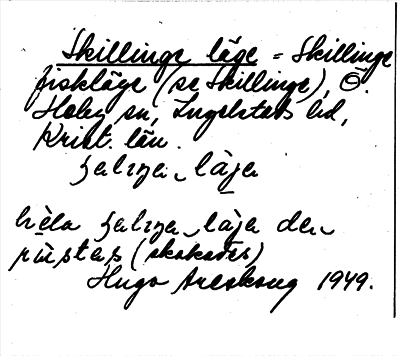 Skillinge läge = Skillinge
fiskläge (se Skillinge), Ö.
Hoby sn, Ingelstads hd,
Krist. län.
ɧaliŋa läja
hela ɧaliŋa läja den
rustas (skakades)
Hugo Areskoug 1949.